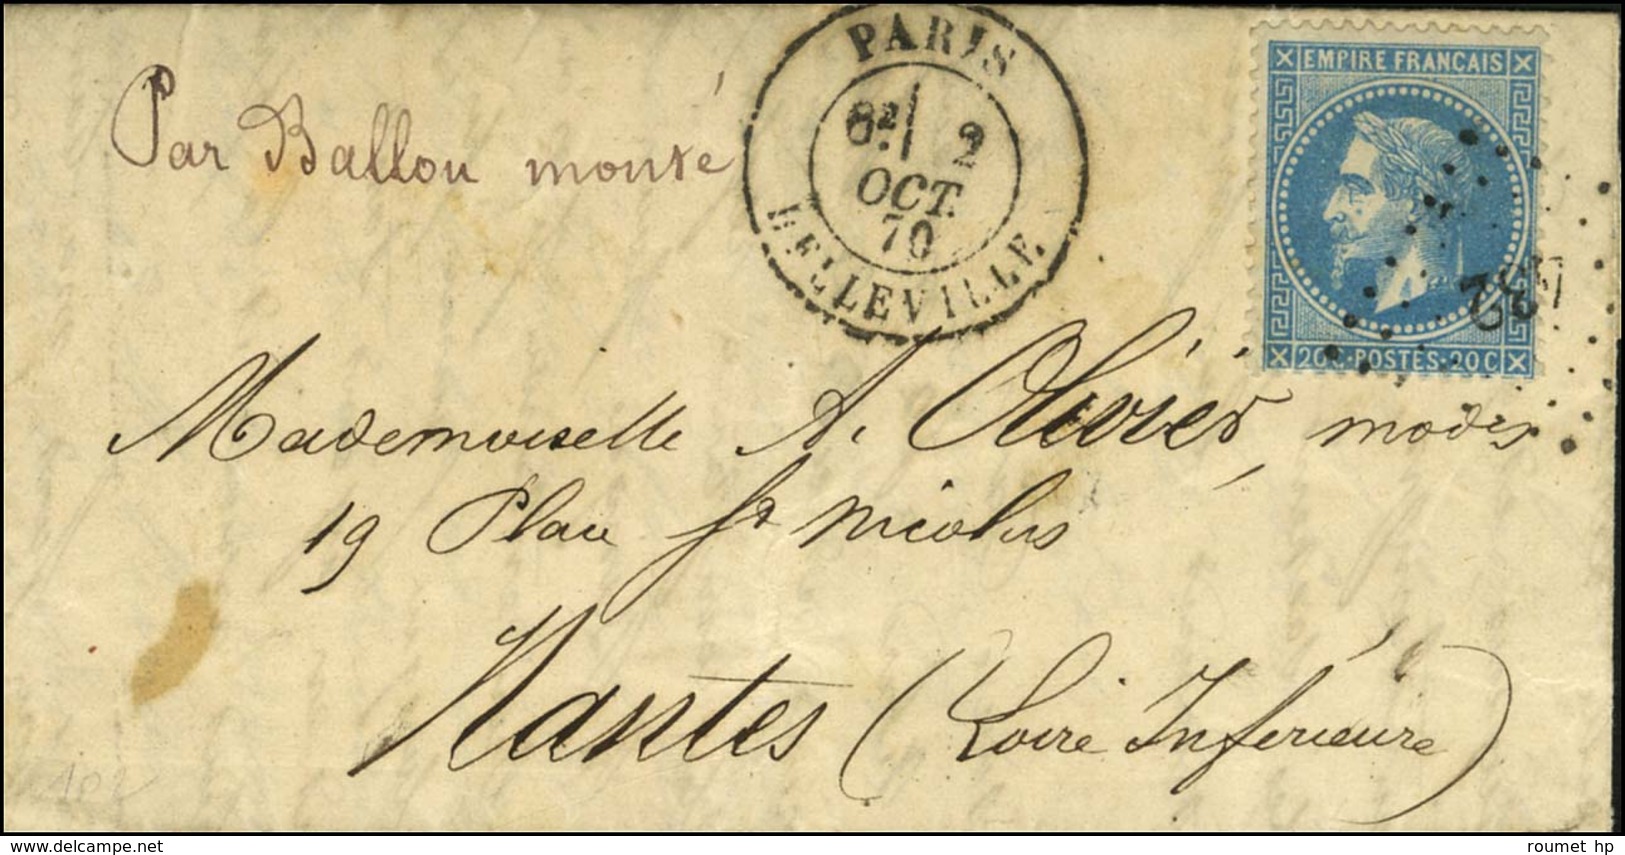 Par Ballon monté
PARIS
8E 2
OCT.
70
BELLEVILLE
EMPIRE FRANÇAIS
20C·POSTES·20C
Mademoiselle A. Olivier, modes
19 Place St Nicolas
Nantes (Loire Inférieure)
102
delcampe.net
roumet hp